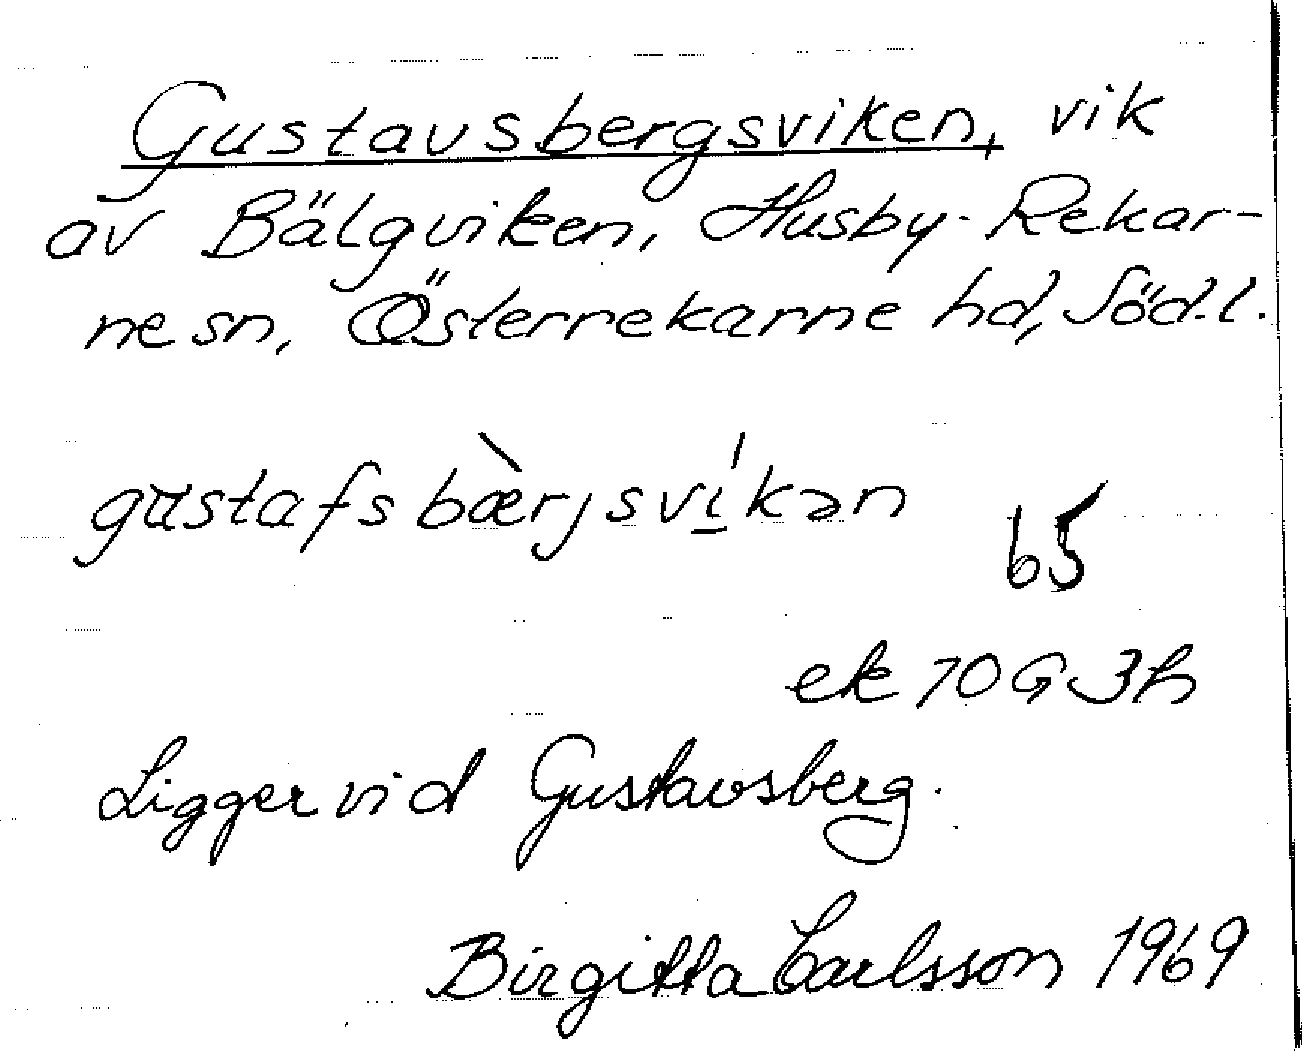 Gustavsbergsviken, vik
av Bälgviken, Husby-Rekar-
ne sn, Österrekarne hd, Söd.l.
gustafsbæ̀rjsví̱kən
65
ek 10G 3h
Ligger vid Gustavsberg.
Birgitta Carlsson 1969